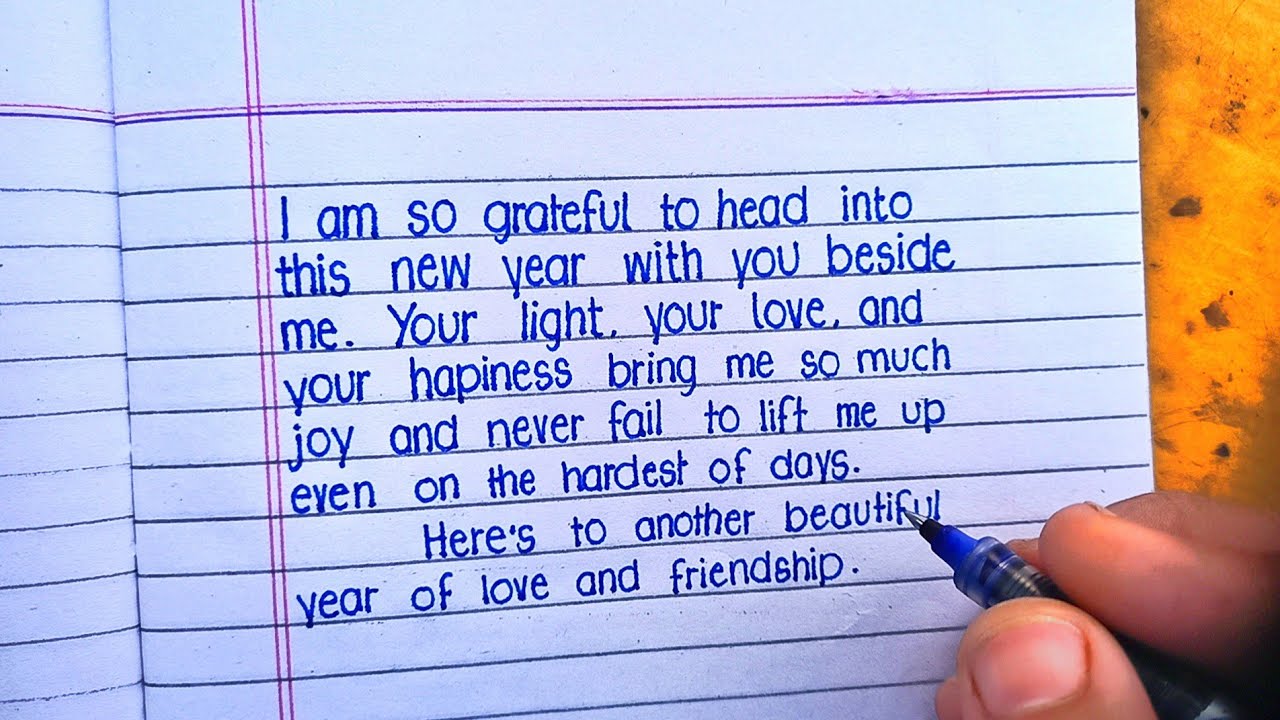 I am so grateful to head into
this new year with you beside
me. Your light, your love, and
your hapiness bring me so much
joy and never fail to lift me up
even on the hardest of days.
Here's to another beautiful
year of love and friendship.